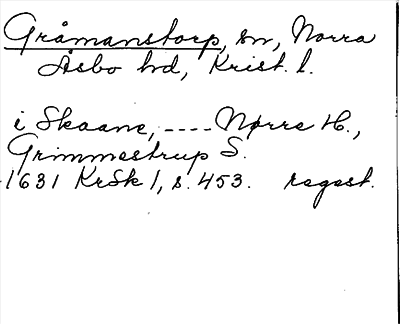 Gråmanstorp, sn, Norra
Åsbo hd, Krist. l.
i Skaane, ---- Nørre H.,
Grimmestrup S.
1631 KrSk 1, s. 453. regest.